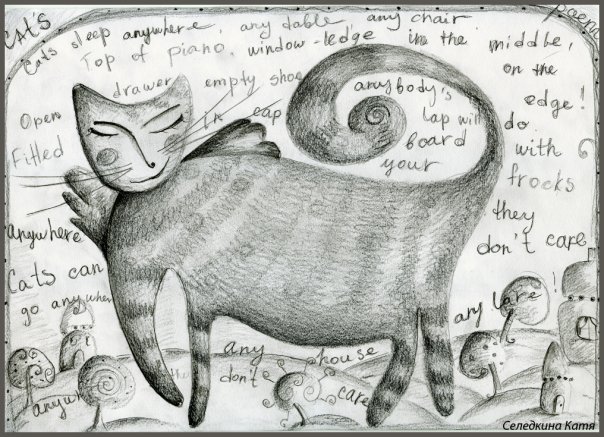 CAt's
poem
Cats sleep anywhere, any table, any chair
Top of piano, window-ledge in the middle,
on the
edge!
Open
drawer
empty shoe
anybody's
lap will
do
Fitted
in
cap
board
with
your
frocks
anywhere
they
don't care
Cats can
go anywhere
any lare!
any house
don't
care
anywh
the
Селедкина Катя